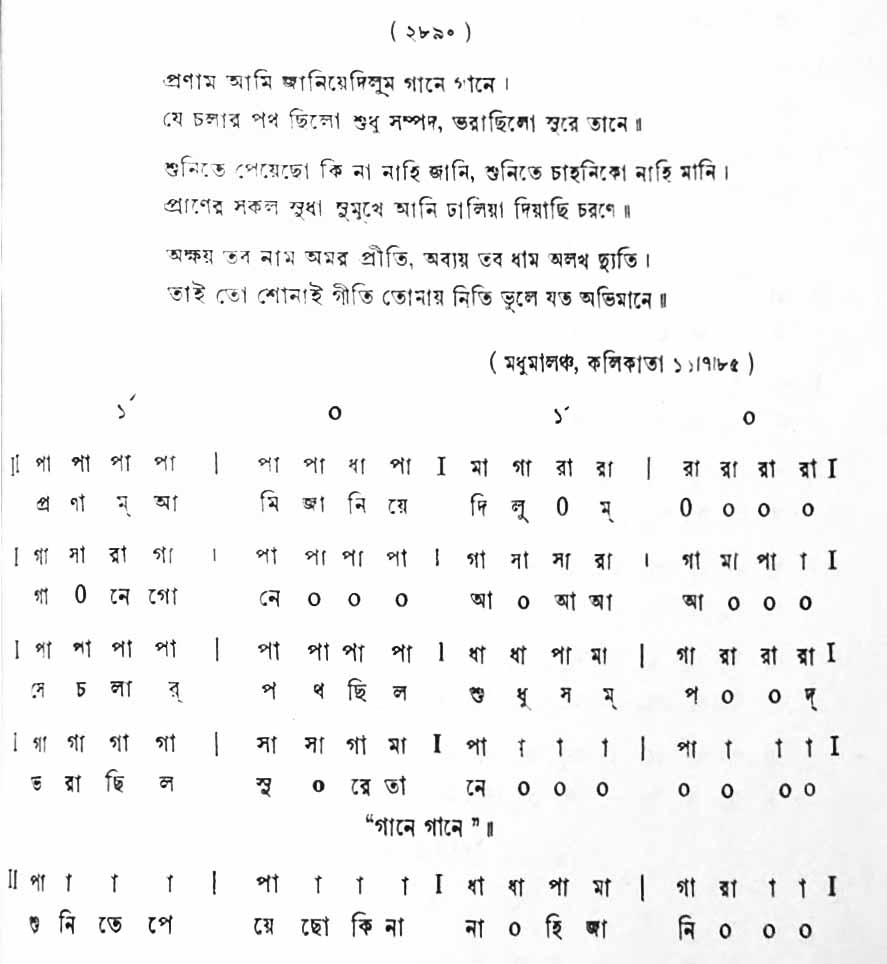 ( ২৮৯০ )
প্রণাম আমি জানিয়েদিলুম গানে গানে ।
যে চলার পথ ছিলো শুধু সম্পদ, ভরাছিলো সুরে তানে ॥
শুনিতে পেয়েছো কি না নাহি জানি, শুনিতে চাহনিকো নাহি মানি ।
প্রাণের সকল সুধা সুমুখে আনি ঢালিয়া দিয়াছি চরণে ॥
অক্ষয় তব নাম অমর প্রীতি, অব্যয় তব ধাম অলখ দ্যুতি ।
তাই তো শোনাই গীতি তোমায় নিতি ভুলে যত অভিমানে ॥
( মধুমালঞ্চ, কলিকাতা ১১।৭।৮৫ )
১´ ০ ১´ ০
II পা পা পা পা | পা পা ধা পা I মা গা রা রা | রা রা রা রা I
প্র ণা ম্ আ মি জা নি য়ে দি লু 0 ম্ 0 ০ ০ ০
I গা সা রা গা । পা পা পা পা I গা সা সা রা । গা মা পা া I
গা 0 নে গো নে ০ ০ ০ আ ০ আ আ আ ০ ০ ০
I পা পা পা পা | পা পা পা পা I ধা ধা পা মা | গা রা রা রা I
যে চ লা র্ প থ ছি ল শু ধু স ম্ প ০ ০ দ্
I গা গা গা গা | সা সা গা মা I পা া া া | পা া া া I
ভ রা ছি ল সু ০ রে তা নে ০ ০ ০ ০ ০ ০ ০
“গানে গানে” ॥
II পা া া া | পা া া া I ধা ধা পা মা | গা রা া া I
শু নি তে পে য়ে ছো কি না না ০ হি জা নি ০ ০ ০